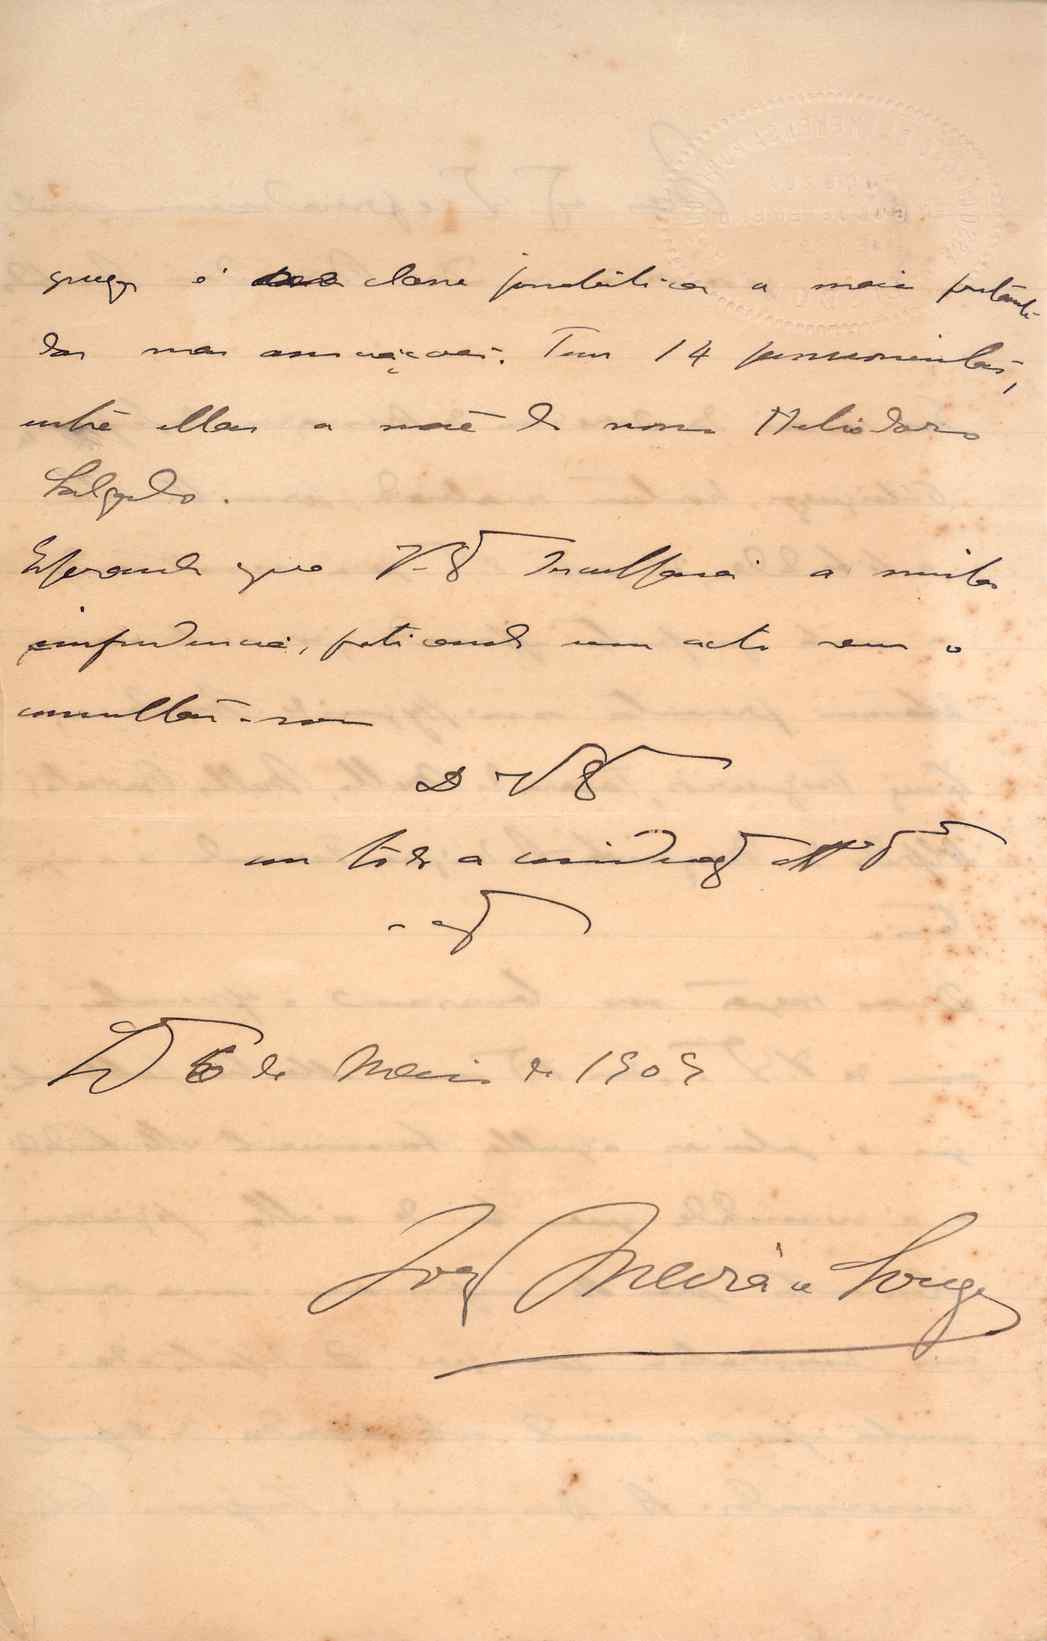 é classe jornalistica a mais
das nas associações. Tem 14 pensionistas,
entre ellas a mãe do nosso Heliodoro
Salgado.
Esperando que V. Ex.ª desculpará a minha
imprudencia, praticando um acto sem o
consultar, sou
De V. Ex.ª
com toda a consideração
Lx.ª 6 de Maio de 1909
José Maria de Souza